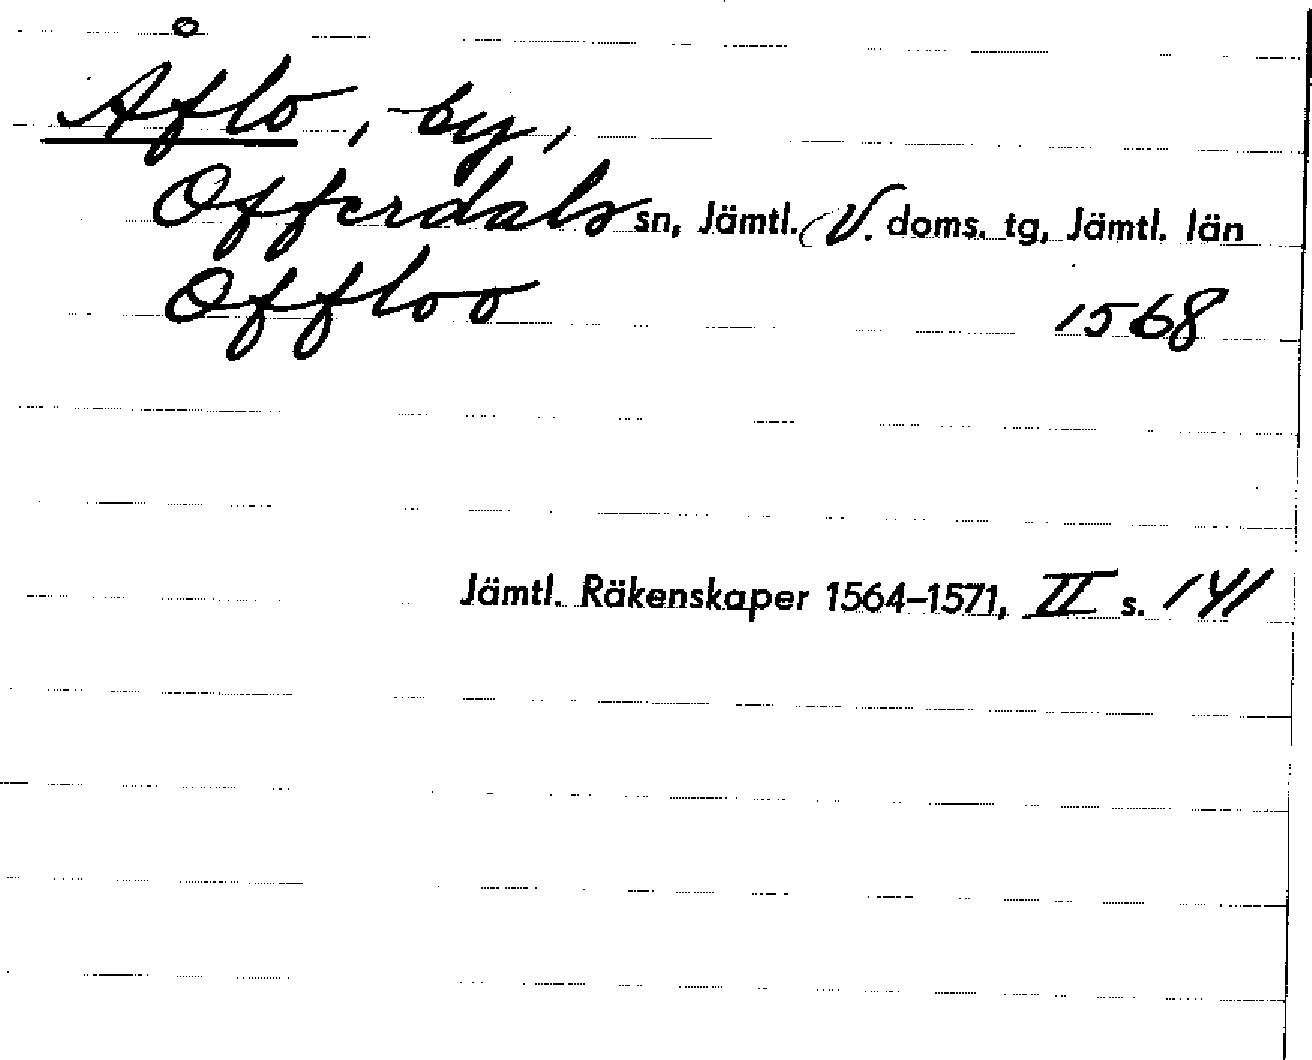 Åflo, by,
Offerdals sn, Jämtl. V. doms. tg, Jämtl. län
Offloo 1568
Jämtl. Räkenskaper 1564–1571, II s. 141